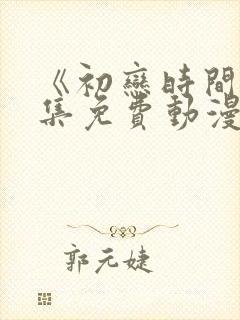 《初戀時間
集免費動漫
郭元婕